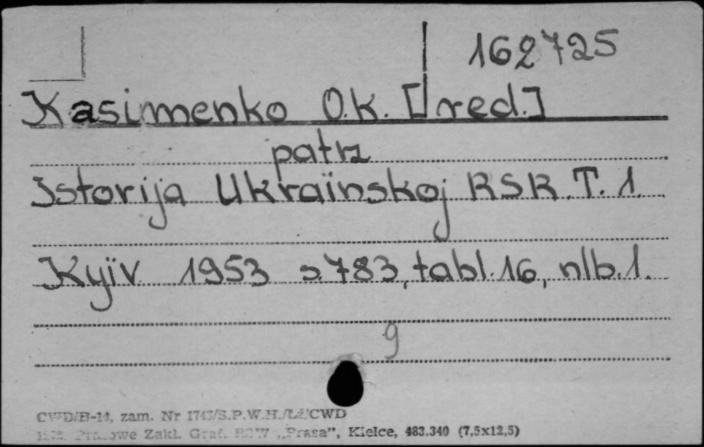 162725
Kasimenko O.K. [red.]
patrz
Istorija Ukraïnskoj RSR. T. 1.
Kyïv 1953 s 783, tabl. 16, nlb. 1.
9
CWD/B-14, zam. Nr /S.P.W.H./ /CWD
Zakł. Graf. RSW „Prasa”, Kielce, 483.340 (7,5x12,5)